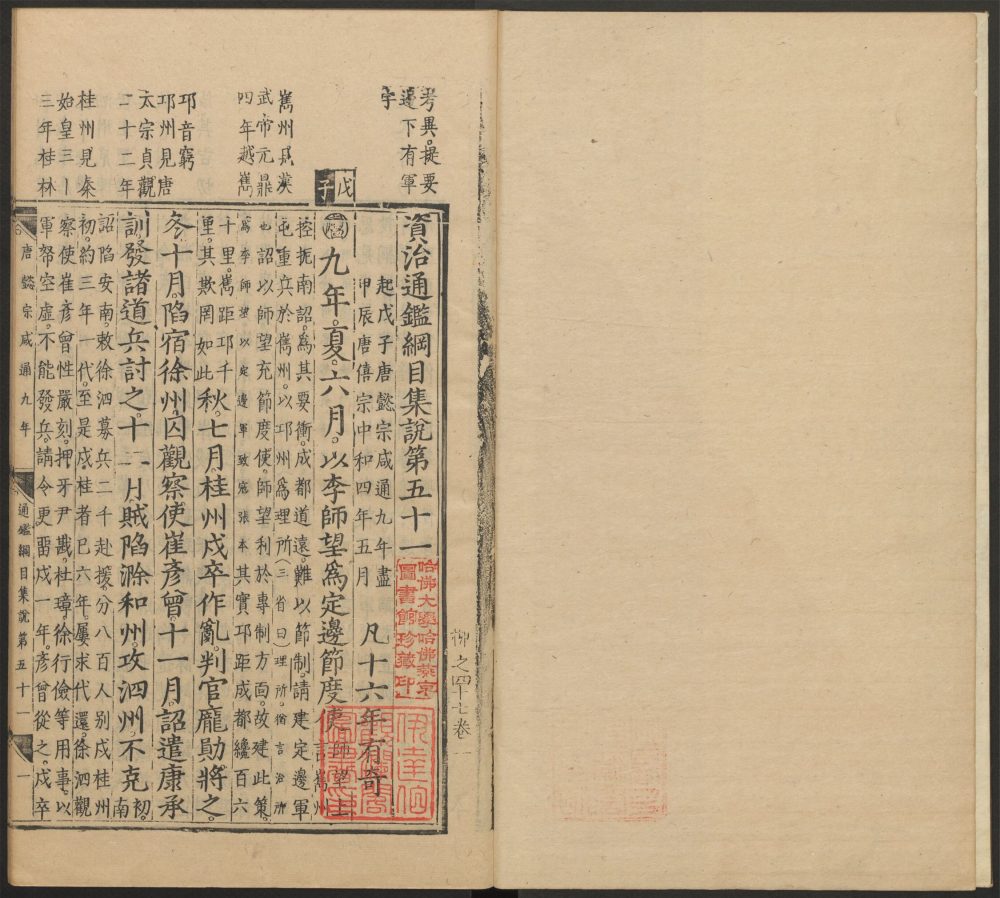 考異提要
邊下有軍
字
戊子
嶲州見漢
武帝元鼎
四年越嶲
邛音窮
邛州見唐
太宗貞觀
二十二年
桂州見秦
始皇三十
三年桂林
資治通鑑綱目集說第五十一
起戊子唐懿宗咸通九年盡
甲辰唐僖宗中和四年五月
凡十六年有奇
九年。夏。六月。以李師望爲定邊節度使
師望上言嶲州
控扼南詔。爲其要衝。成都道遠。難以節制。請建定邊軍
屯重兵於嶲州。以邛州爲理所(三省曰)理所。猶言治所
也詔以師望充節度使。師望利於專制方面。故建此策。
爲李師望以定邊軍致寇張本其實邛距成都纔百六
十里。嶲距邛千
里。其欺罔如此秋。七月。桂州戍卒作亂。判官龐勛將之。
冬十月。陷宿徐州。囚觀察使崔彥曾。十一月。詔遣康承
訓發諸道兵討之。十二月。賊陷滁和州。攻泗州。不克
初。南
詔陷安南。敕徐泗募兵二千赴援。分八百人别戍桂州
初。約三年一代。至是戍桂者已六年。屢求代還。徐泗觀
察使崔彥曾性嚴刻。押牙尹戡。杜璋。徐行儉等用事。以
軍帑空虛。不能發兵。請令更畱戍一年。彥曾從之。戍卒
唐懿宗咸通九年
通鑑綱目集說第五十一
一
柳之四十七卷一
哈佛大學哈佛燕京
圖書館珍藏印